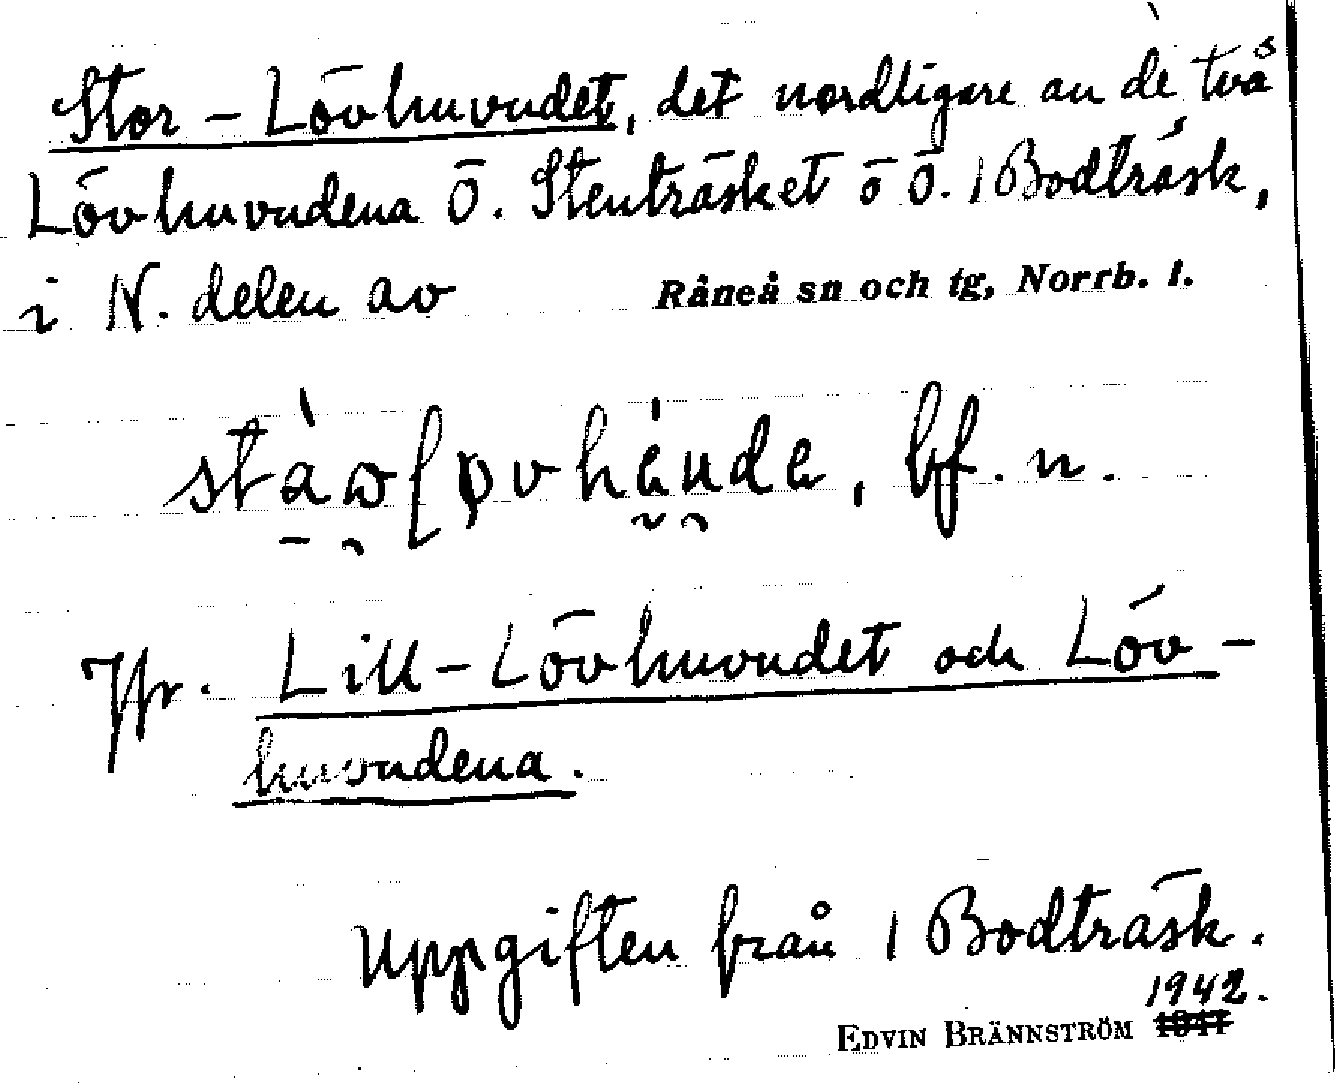 Stor-Lövhuvudet, det nordligare av de två
Lövhuvudena Ö. Stenträsket o Ö. 1 Bodträsk,
i N. delen av Råneå sn och tg, Norrb. l.
bf. n.
Jfr. Lill-Lövhuvudet och Löv-
huvudena.
Uppgiften från 1 Bodträsk.
1942.
EDVIN BRÄNNSTRÖM 1941